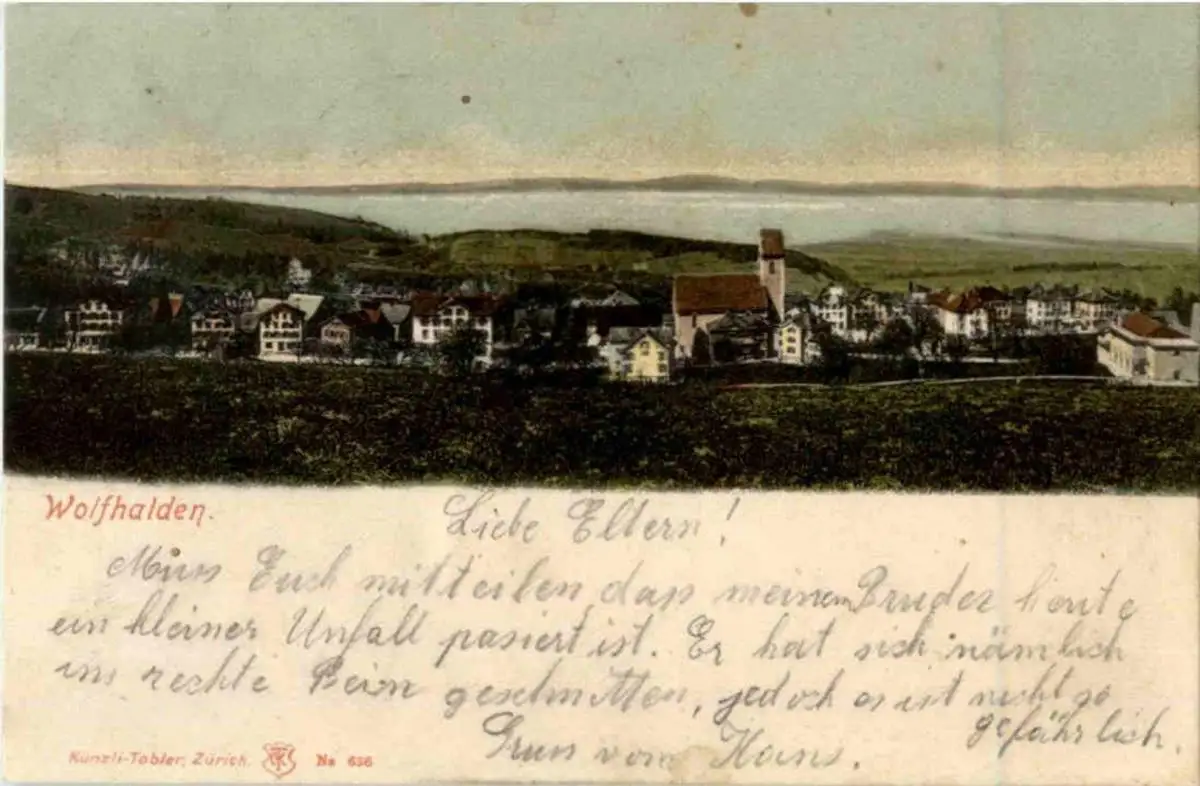 Wolfhalden.
Liebe Eltern!
Muss Euch mitteilen, dass meinem Bruder heute
ein kleiner Unfall pasiert ist. Er hat sich nämlich
ins rechte Bein geschnitten, jedoch es ist nicht so
gefährlich.
Gruss vom Hans.
Künzli-Tobler, Zürich. No 656